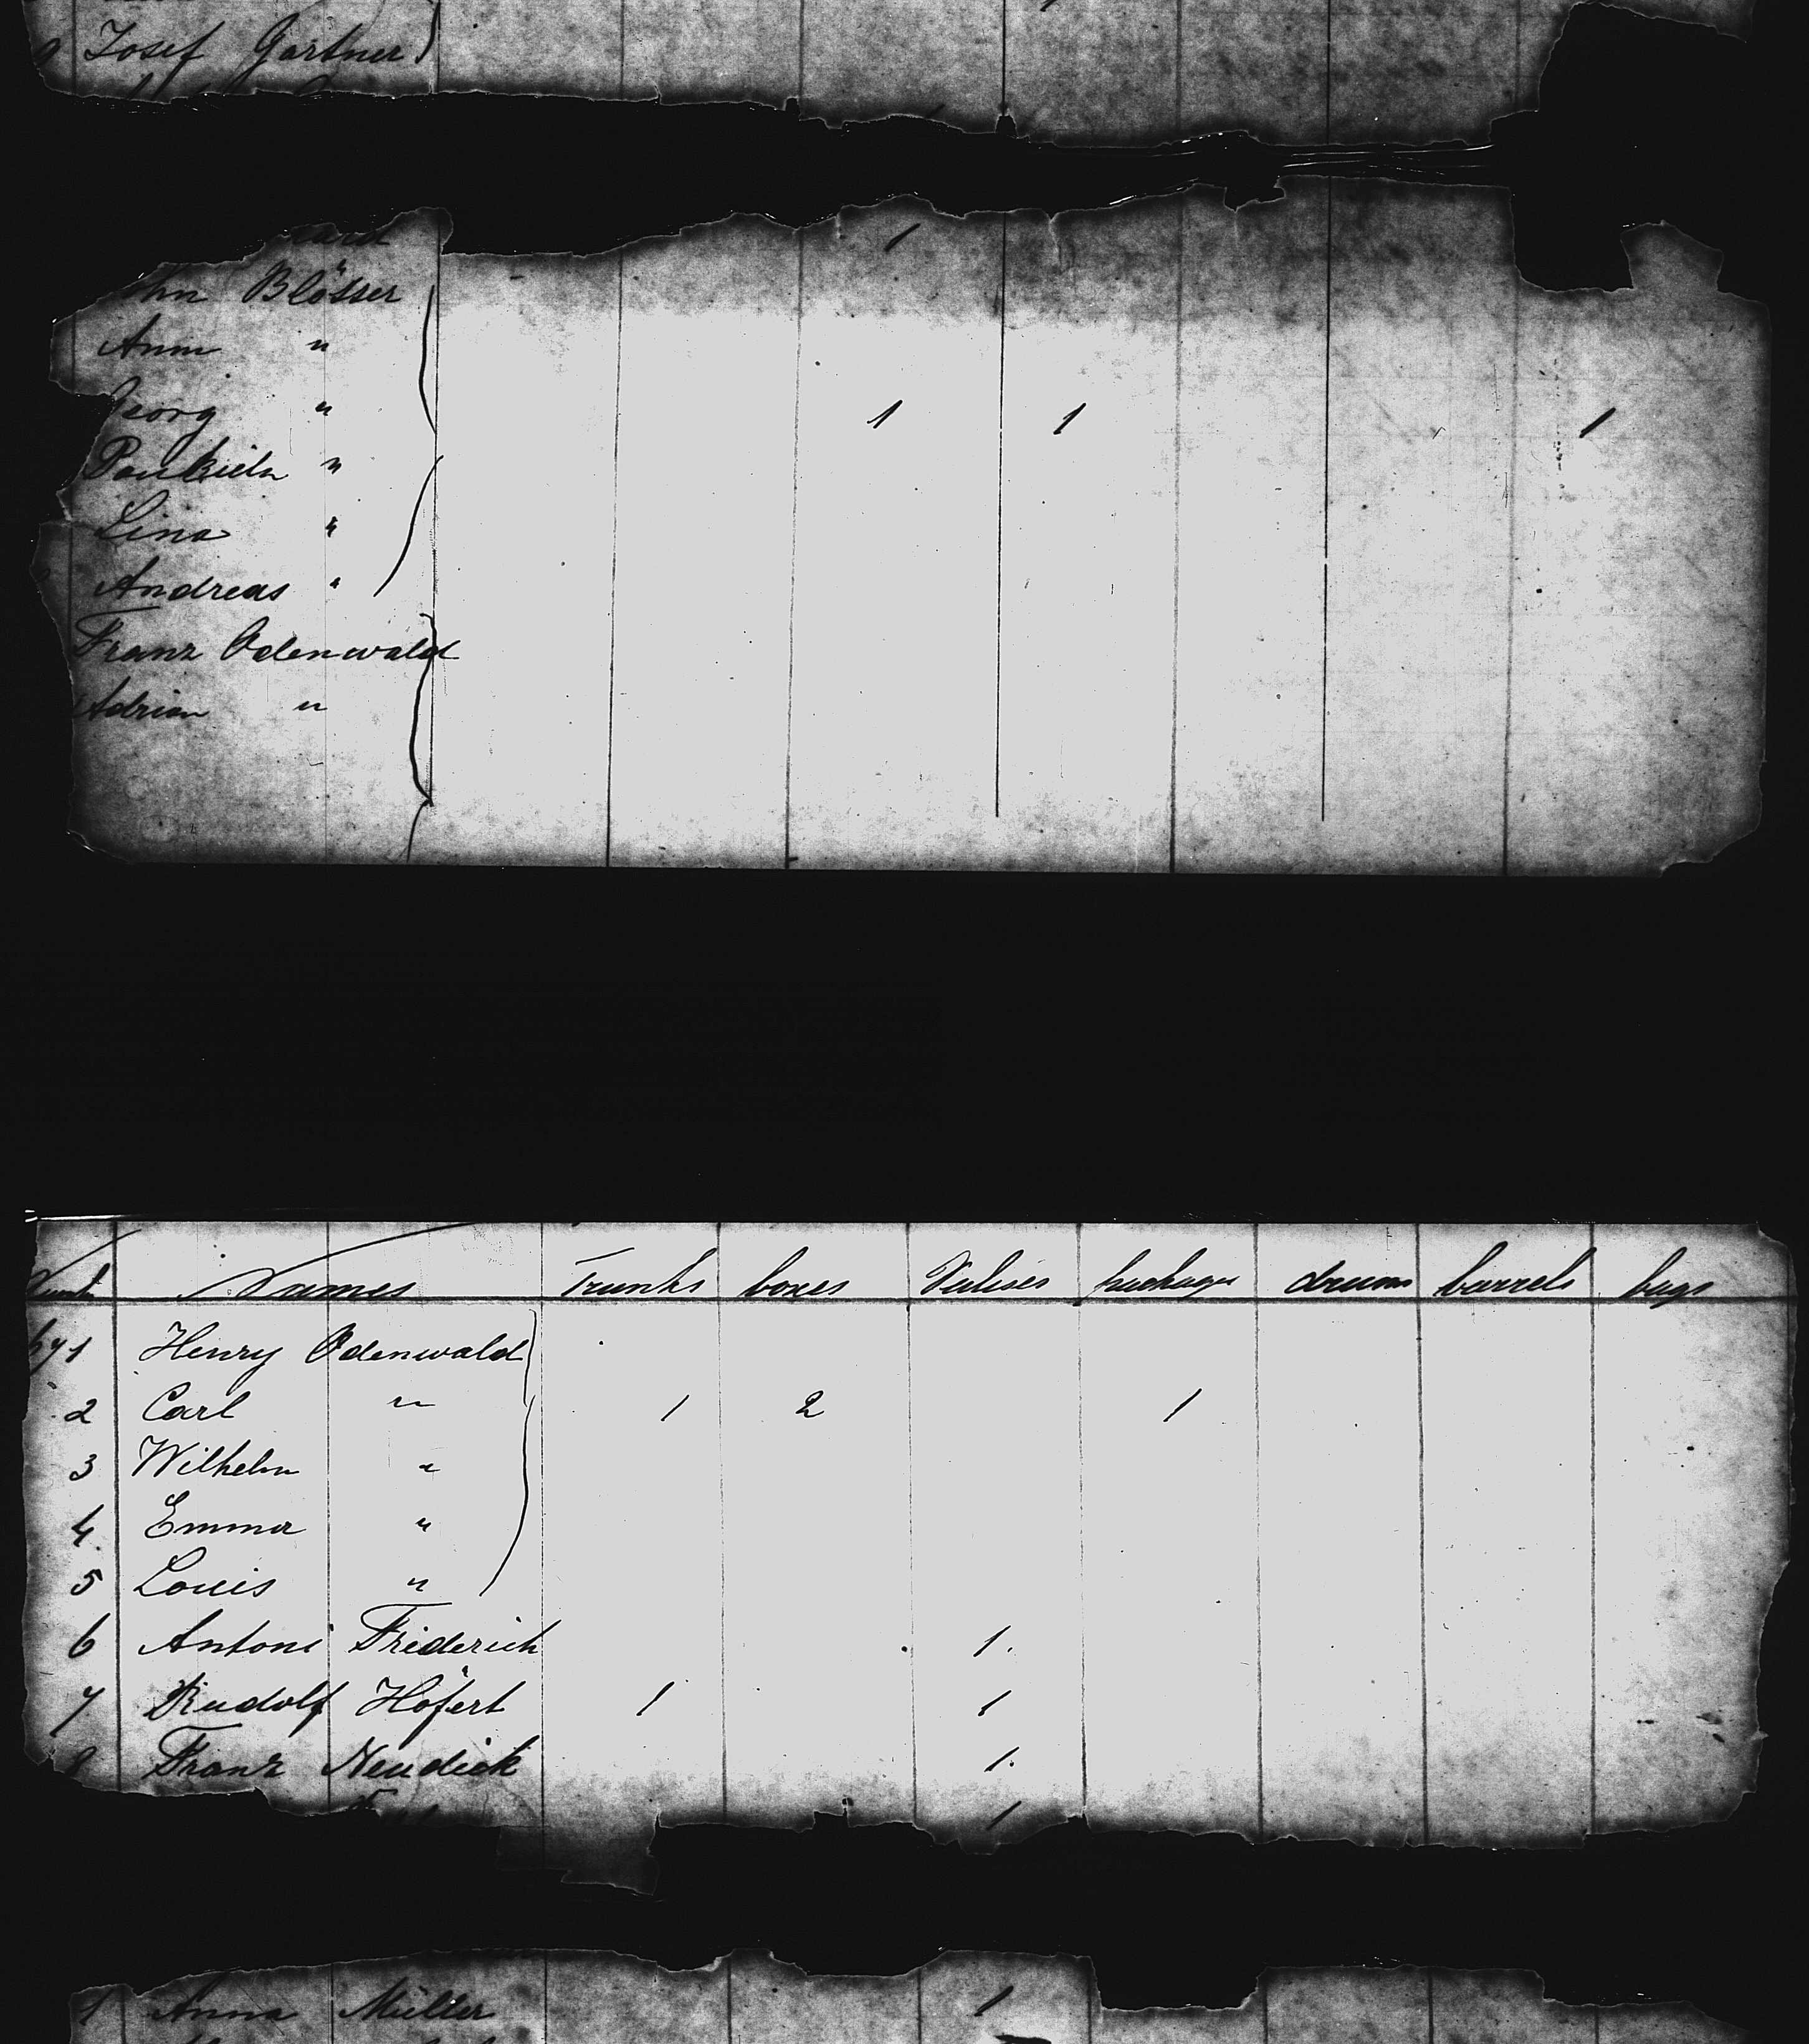 Josef Gartner
Blösser
Ann "
Georg " 1 1 1
"
Lina "
Andreas "
Franz Odenwald
Adrian "
Names Trunks boxes Valises packages drums barrels bags
1 Henry Odenwald
2 Carl " 1 2 1
3 Wilhelm "
4 Emma "
5 Louis "
6 Antoni Friderich 1.
7 Rudolf Höfert 1 1
8 Franz Neudick 1.
1
1 Anna Müller 1